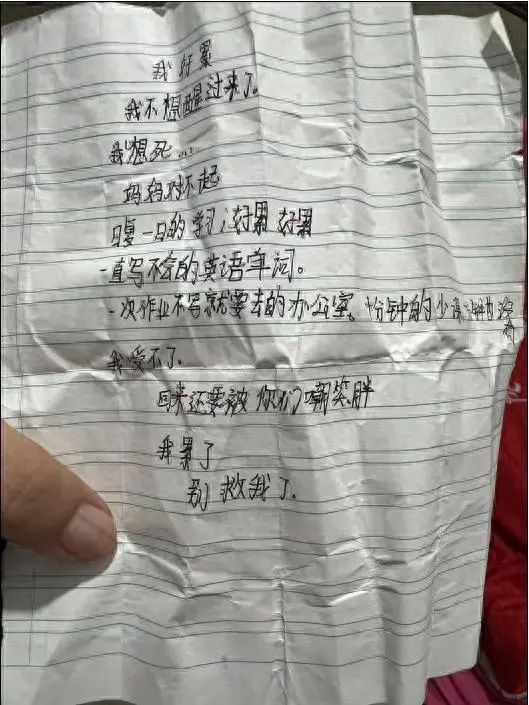 我好累
我不想醒过来了。
我想死...
妈妈对不起
日复一日的学习,好累 好累
一直写不会的英语单词。
一次作业不写就要去的办公室。十分钟的少
我受不了.
回来还要被你们嘲笑胖
我累了
别救我了.